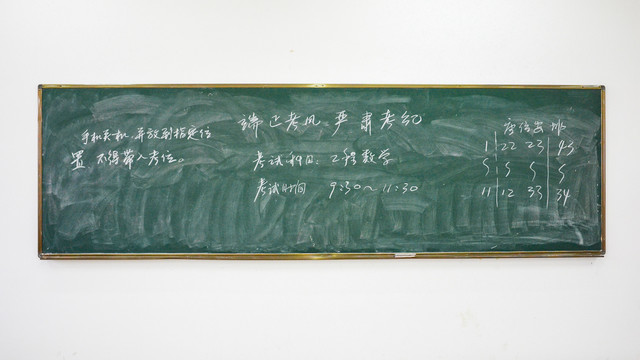 手机关机,并放到指定位
置,不得带入考位。
端正考风 严肃考纪
考试科目:工程数学
考试时间 9:30~11:30
座位安排
1 | 22 23 | 43
5 | 5 5 | 5
11 | 12 33 | 34